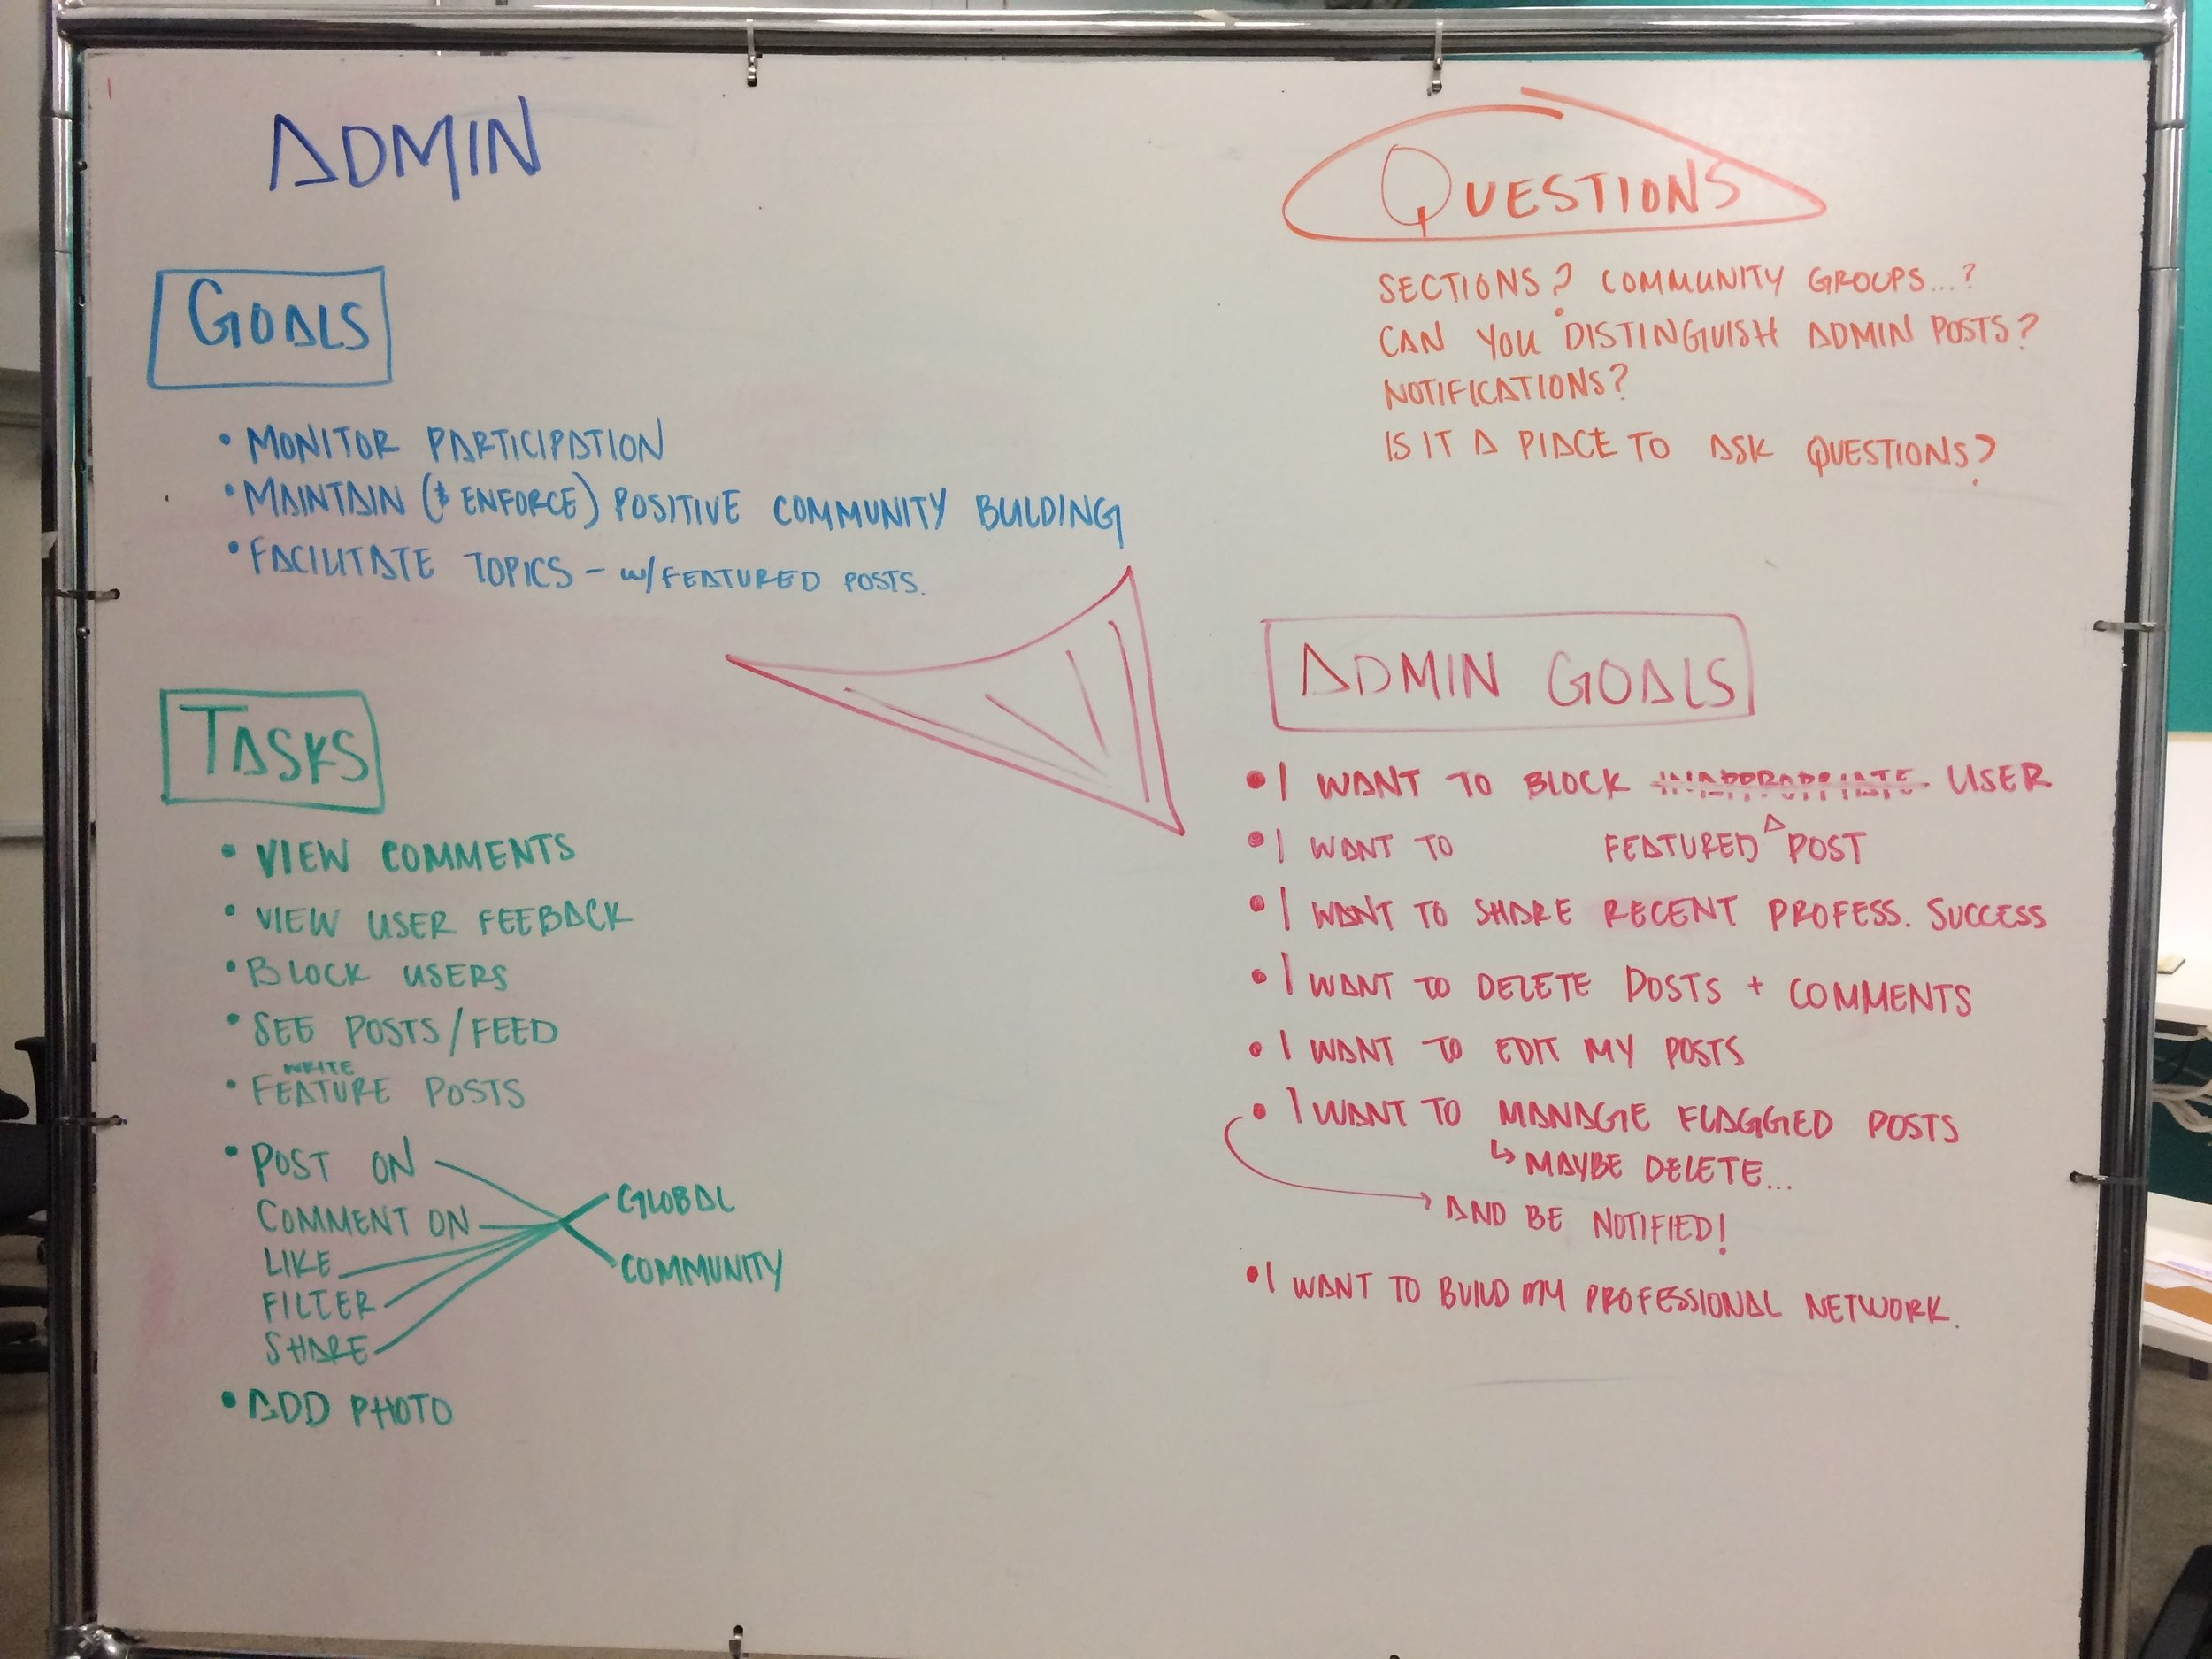 ADMIN
GOALS
• MONITOR PARTICIPATION
• MAINTAIN (& ENFORCE) POSITIVE COMMUNITY BUILDING
• FACILITATE TOPICS - W/ FEATURED POSTS.
TASKS
• VIEW COMMENTS
• VIEW USER FEEBACK
• BLOCK USERS
• SEE POSTS/FEED
WRITE
• FEATURE POSTS
• POST ON
COMMENT ON
LIKE
FILTER
SHARE
GLOBAL
COMMUNITY
• ADD PHOTO
QUESTIONS
SECTIONS? COMMUNITY GROUPS...?
CAN YOU DISTINGUISH ADMIN POSTS?
NOTIFICATIONS?
IS IT A PLACE TO ASK QUESTIONS?
ADMIN GOALS
• I WANT TO BLOCK INAPPROPRIATE USER
• I WANT TO FEATURED A POST
• I WANT TO SHARE RECENT PROFESS. SUCCESS
• I WANT TO DELETE POSTS + COMMENTS
• I WANT TO EDIT MY POSTS
• I WANT TO MANAGE FLAGGED POSTS
↳ MAYBE DELETE...
→ AND BE NOTIFIED!
• I WANT TO BUILD MY PROFESSIONAL NETWORK.